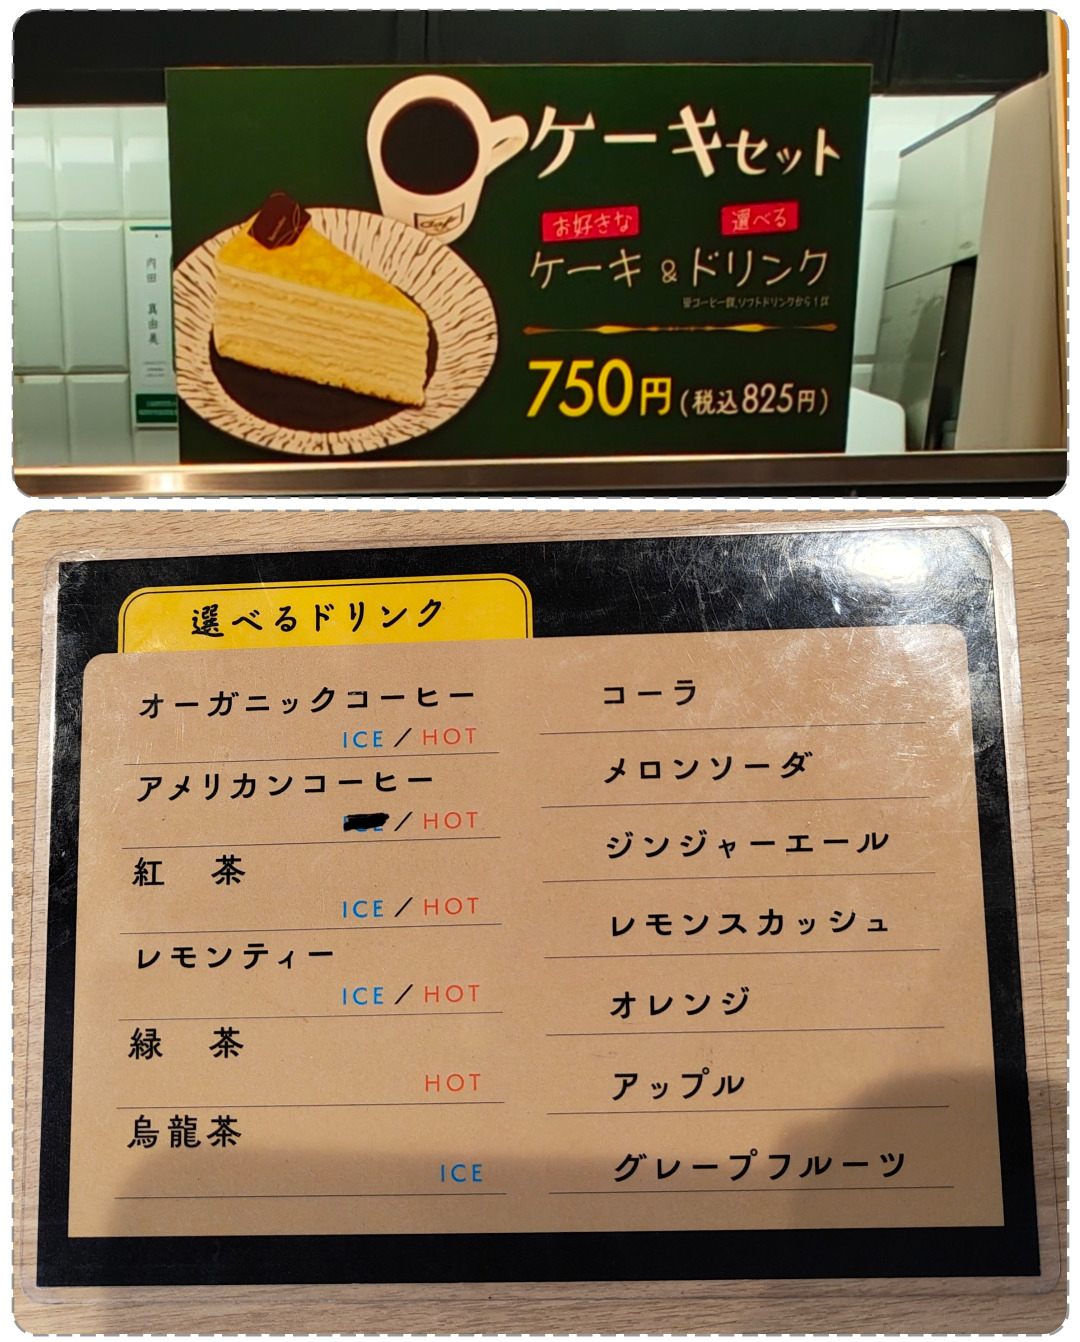 ケーキセット
お好きな 選べる
ケーキ & ドリンク
750円(税込825円)
内田 真由美
選べるドリンク
オーガニックコーヒー
ICE / HOT
アメリカンコーヒー
/ HOT
紅 茶
ICE / HOT
レモンティー
ICE / HOT
緑 茶
HOT
烏龍茶
ICE
コーラ
メロンソーダ
ジンジャーエール
レモンスカッシュ
オレンジ
アップル
グレープフルーツ